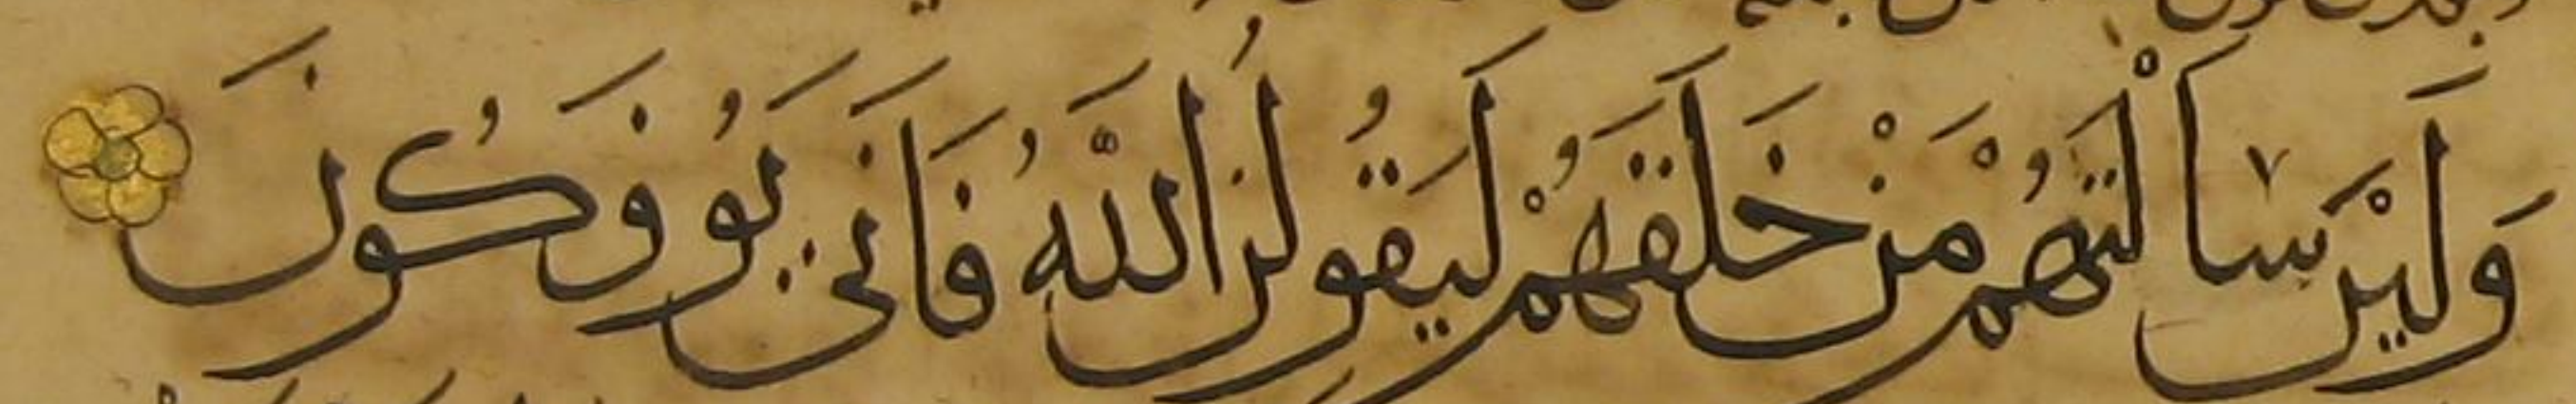 وَلَيِنْ سَأَلْتَهُمْ مَنْ خَلَقَهُمْ لَيَقُولُنَّ اللَّهُ فَأَنَّى يُوفَكُونَ